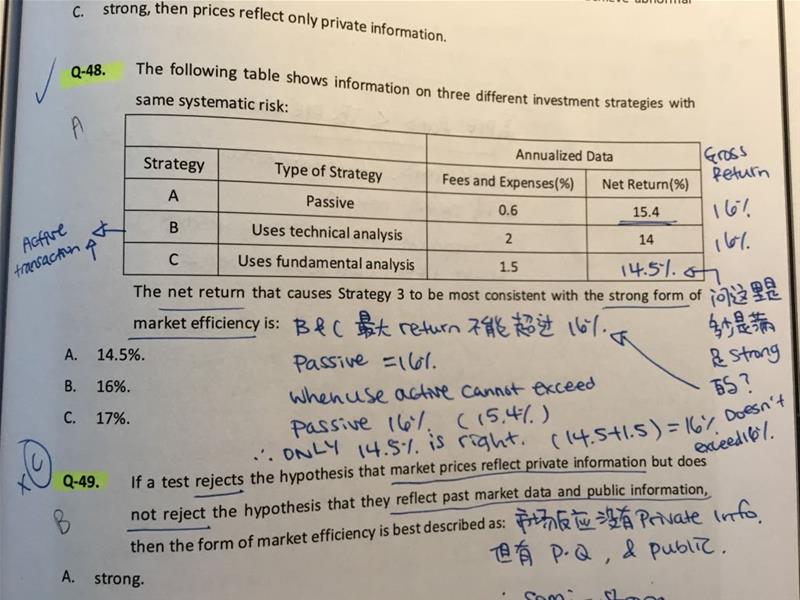 C. strong, then prices reflect only private information.
Q-48. The following table shows information on three different investment strategies with
same systematic risk:
A
Annualized Data
Gross Return
Strategy Type of Strategy Fees and Expenses(%) Net Return(%)
A Passive 0.6 15.4 16%
B Uses technical analysis 2 14 16%
Active transaction ↑
C Uses fundamental analysis 1.5 14.5%
The net return that causes Strategy 3 to be most consistent with the strong form of
market efficiency is:
问这里是
多少是满
足 strong
的?
B & C 最大 return 不能超过 16%.
A. 14.5%.
Passive = 16%.
B. 16%.
When use active cannot exceed
C. 17%.
Passive 16%. (15.4%)
∴ ONLY 14.5% is right. (14.5+1.5) = 16% Doesn't
exceed 16%.
C
Q-49. If a test rejects the hypothesis that market prices reflect private information but does
not reject the hypothesis that they reflect past market data and public information,
B
then the form of market efficiency is best described as:
市场反应没有 Private Info.
但有 P.Q, & public.
A. strong.